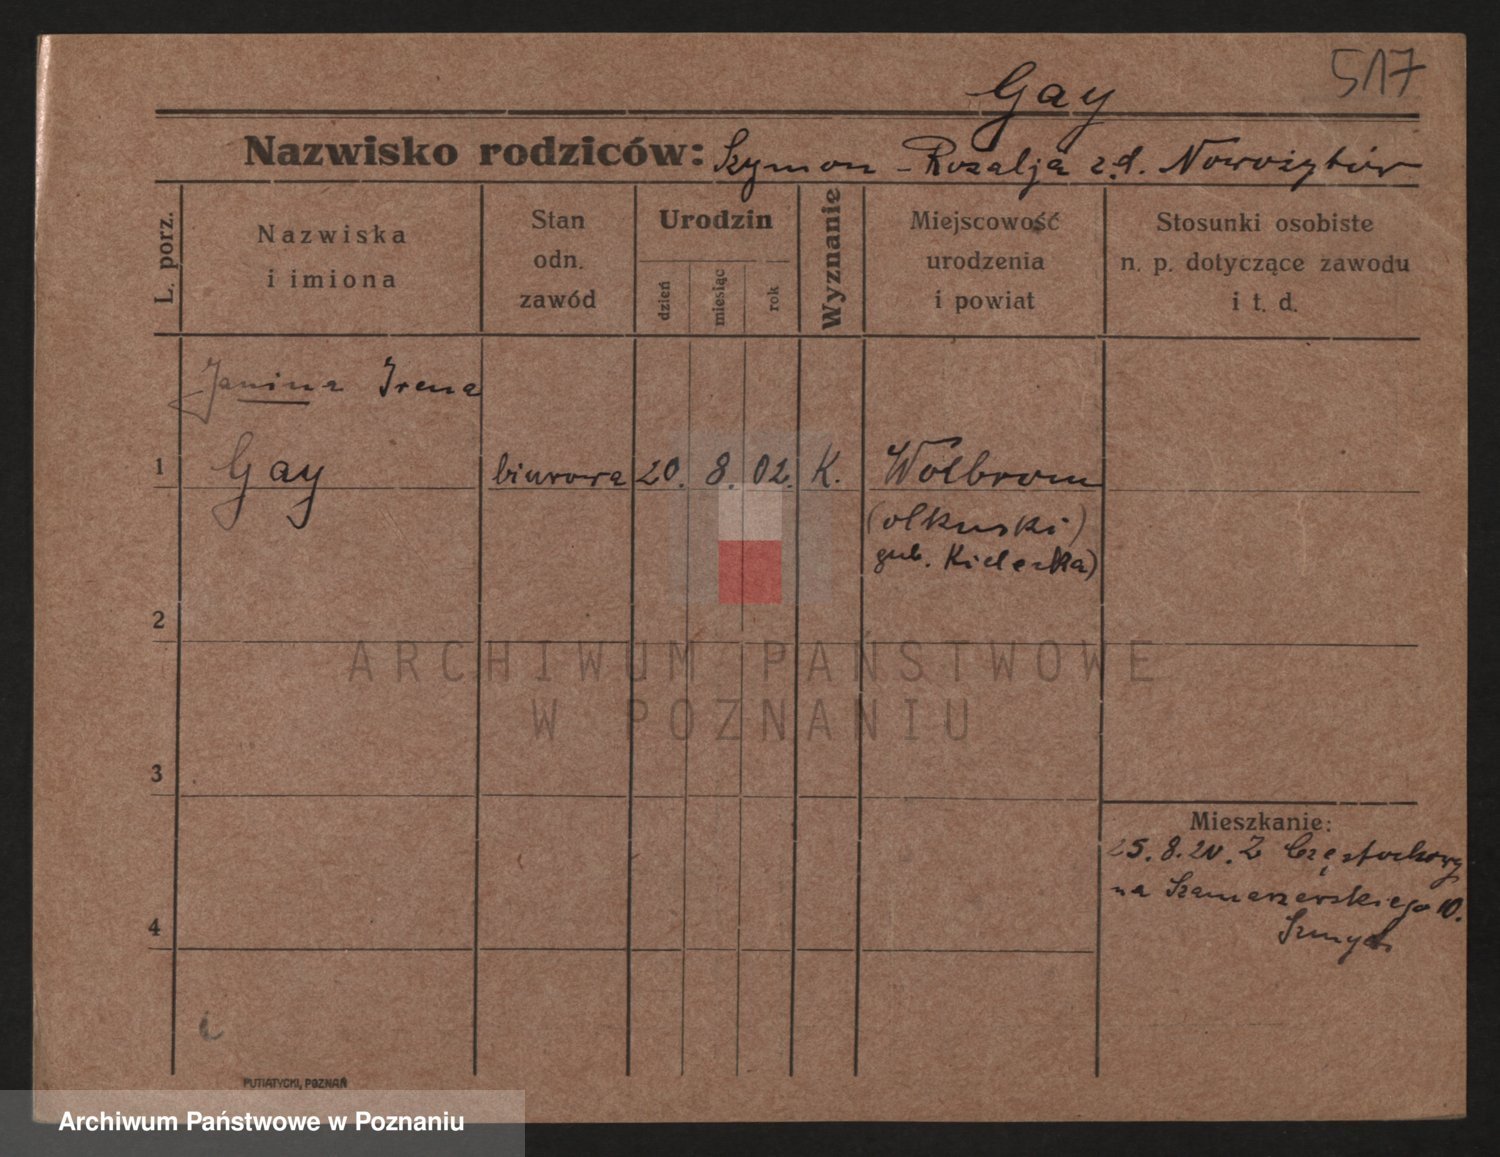 517
Gay
Nazwisko rodziców: Szymon - Rozalja z.d. Nowożytów
L. porz.
Nazwiska
i imiona
Stan
odn.
zawód
Urodzin
dzień
miesiąc
rok
Wyznanie
Miejscowość
urodzenia
i powiat
Stosunki osobiste
n. p. dotyczące zawodu
i t. d.
Janina Irena
1 Gay biurowa 20. 8. 02. K. Wolbrom
(olkuski)
gub. Kielecka)
2
ARCHIWUM PAŃSTWOWE
W POZNANIU
3
Mieszkanie:
25. 8. 20. Z Częstochowy
na Szamarzewskiego 10.
4
PUTIATYCKI, POZNAŃ
Archiwum Państwowe w Poznaniu